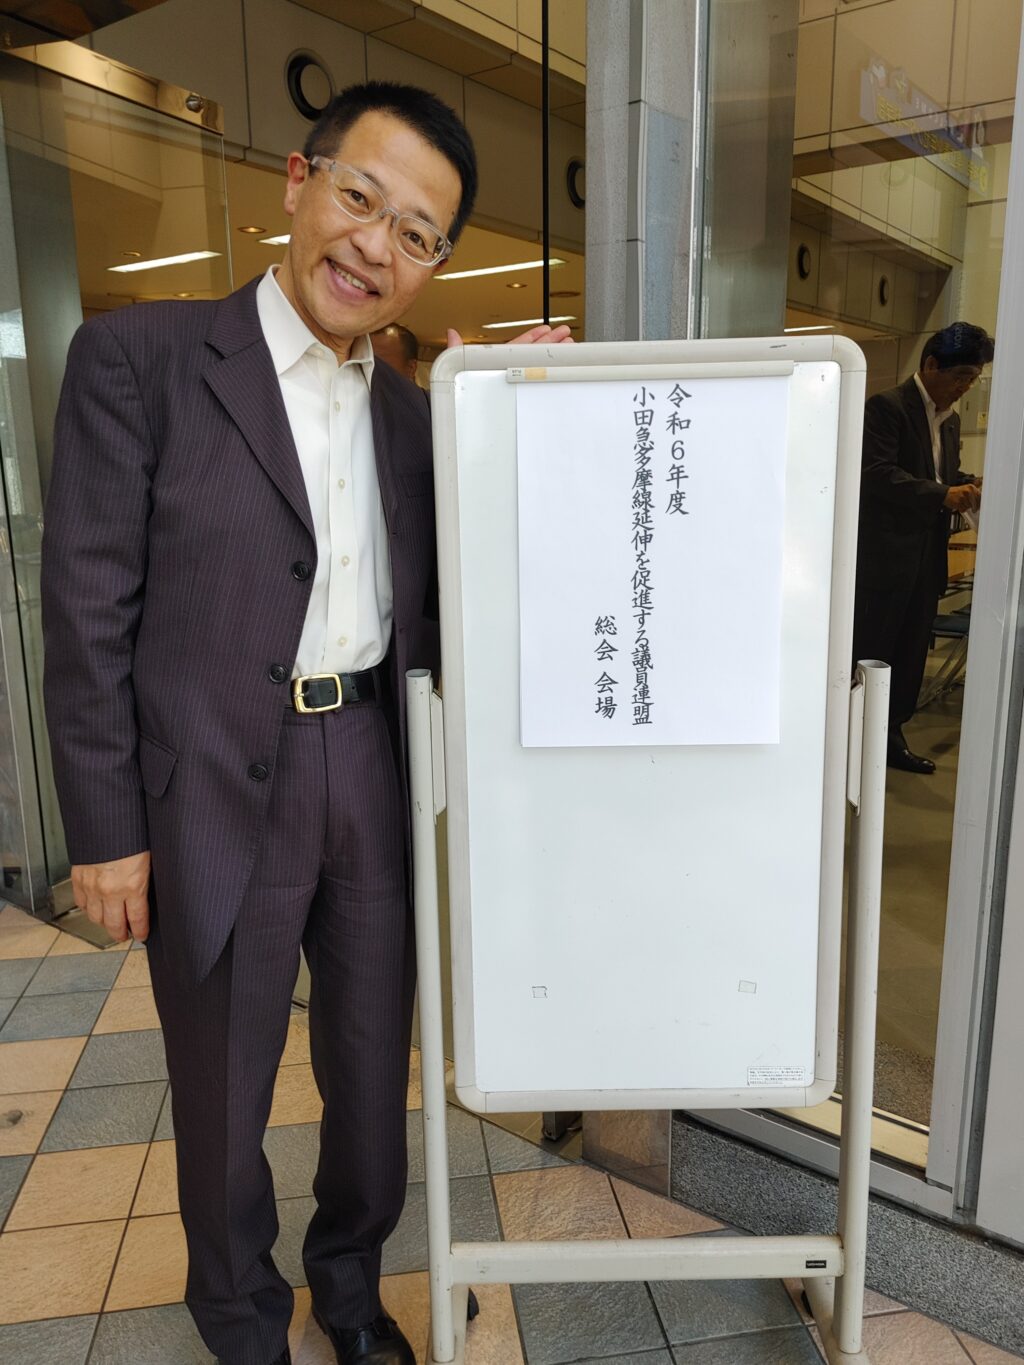 令和６年度
小田急多摩線延伸を促進する議員連盟
総会 会場